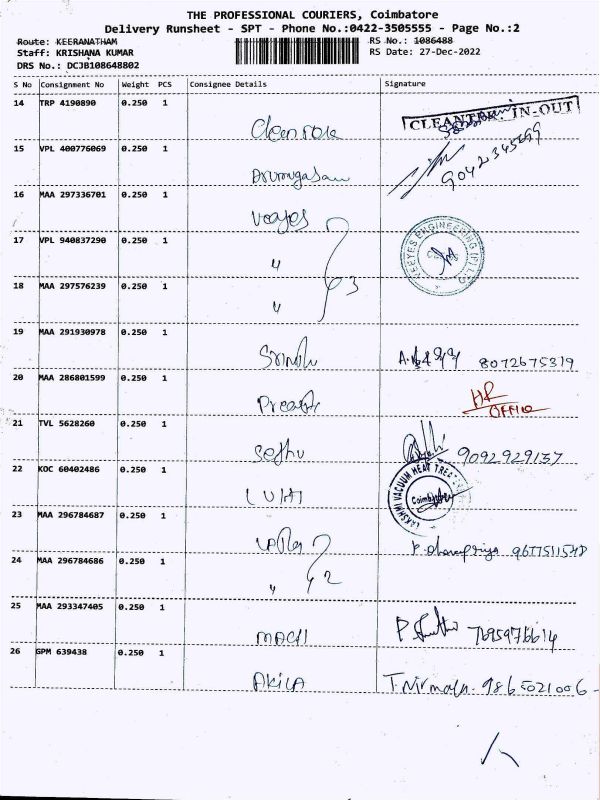 THE PROFESSIONAL COURIERS, Coimbatore
Delivery Runsheet - SPT - Phone No.:0422-3505555 - Page No.:2
Route: KEERANATHAM RS No.: 1086488
Staff: KRISHANA KUMAR RS Date: 27-Dec-2022
DRS No.: DCJB108648802
S No Consignment No Weight PCS Consignee Details Signature
14 TRP 4190890 0.250 1
CLEANTEK IN-OUT
15 VPL 400776069 0.250 1
Arumugasam
16 MAA 297336701 0.250 1
Veeyes
VEEYES ENGINEERING (P) LTD
17 VPL 940837290 0.250 1
"
18 MAA 297576239 0.250 1
" 3
19 MAA 291930978 0.250 1
8072675319
20 MAA 286801599 0.250 1
HR
OFFICE
21 TVL 5628260 0.250 1
Sethu 9092929157
22 KOC 60402486 0.250 1
LVHT
LAKSHMI VACUUM HEAT
Coimbatore
23 MAA 296784687 0.250 1
24 MAA 296784686 0.250 1
" 2
25 MAA 293347405 0.250 1
7695976614
26 GPM 639438 0.250 1
AKILA T.Nirmala. 9865021006